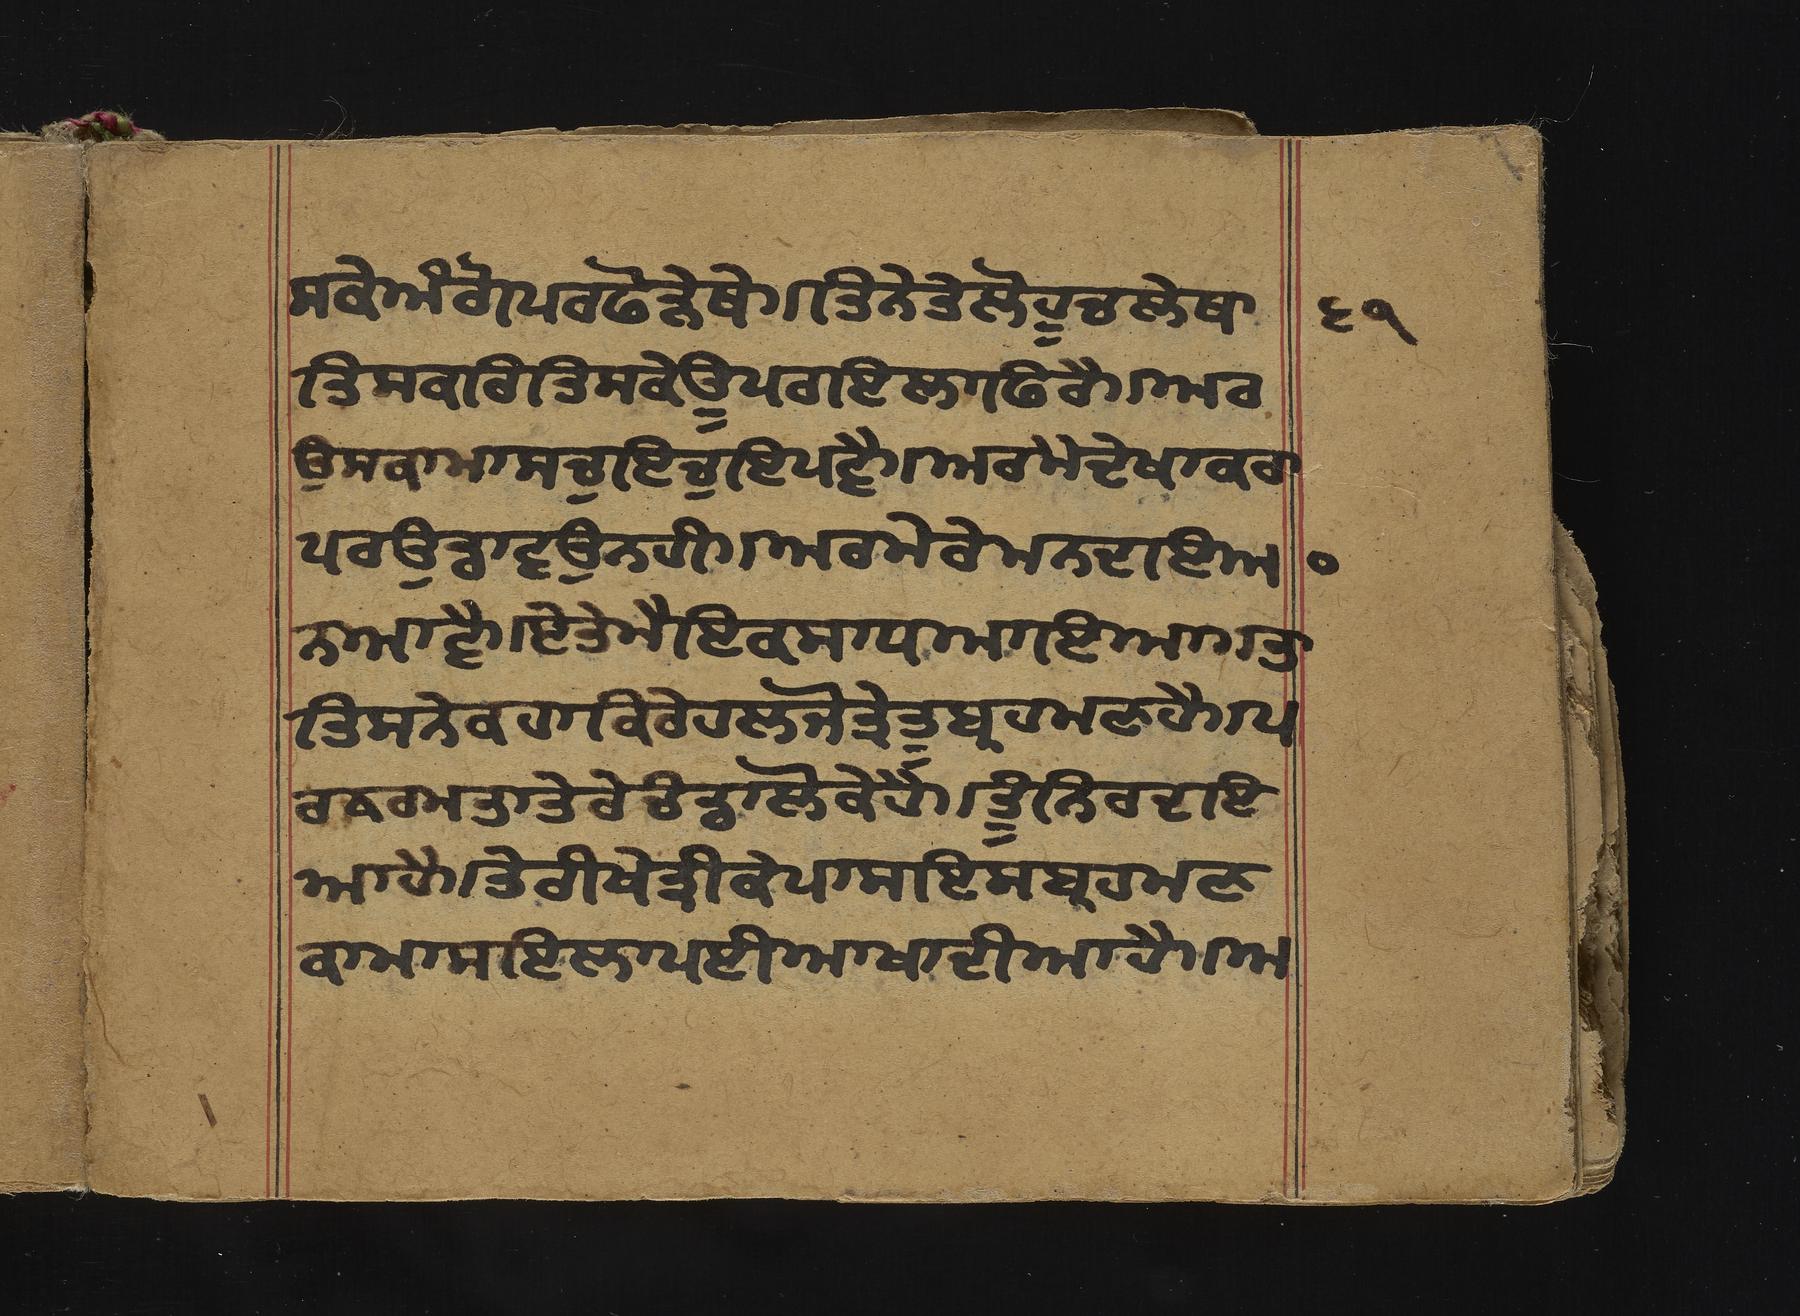 ਸਕੇਅੰਗੋਪਰਢੋਲ੍ਹੇਥੇ।ਤਿਨੇਤੇਲੋਹੂਚਲੇਥਾ ੬੧
ਤਿਸਕਰਿਤਿਸਕੇਊਪਰਇਲਾਫਿਰੈ।ਅਰ
ਉਸਕਾਮਾਸਚੁਇਚੁਇਪਵੈ।ਅਰਮੇਦੇਖਾਕਰਾ
ਪਰਉਤ੍ਰਾਵਉਨਹੀ।ਅਰਮੇਰੇਮਨਦਾਇਅ ੦
ਨਆਵੈ।ਏਤੇਮੈਇਕਸਾਧਆਇਆ।ਤਾ
ਤਿਸਨੇਕਹਾਕਿਰੇਹਲਜੋਤੇਤੂਬ੍ਰਹਮਣਹੈ।ਪ
ਰਕਰਮਤਾਤੇਰੇਚੰਡਾਲੋਕੇਹੈ।ਤੂੰਨਿਰਦਾਇ
ਆਹੈ।ਤੇਰੀਖੇਤ੍ਰੀਕੇਪਾਸਇਸਬ੍ਰਹਮਣ
ਕਾਮਾਸਇਲਾਪਈਆਖਾਦੀਆਹੈ।ਅ